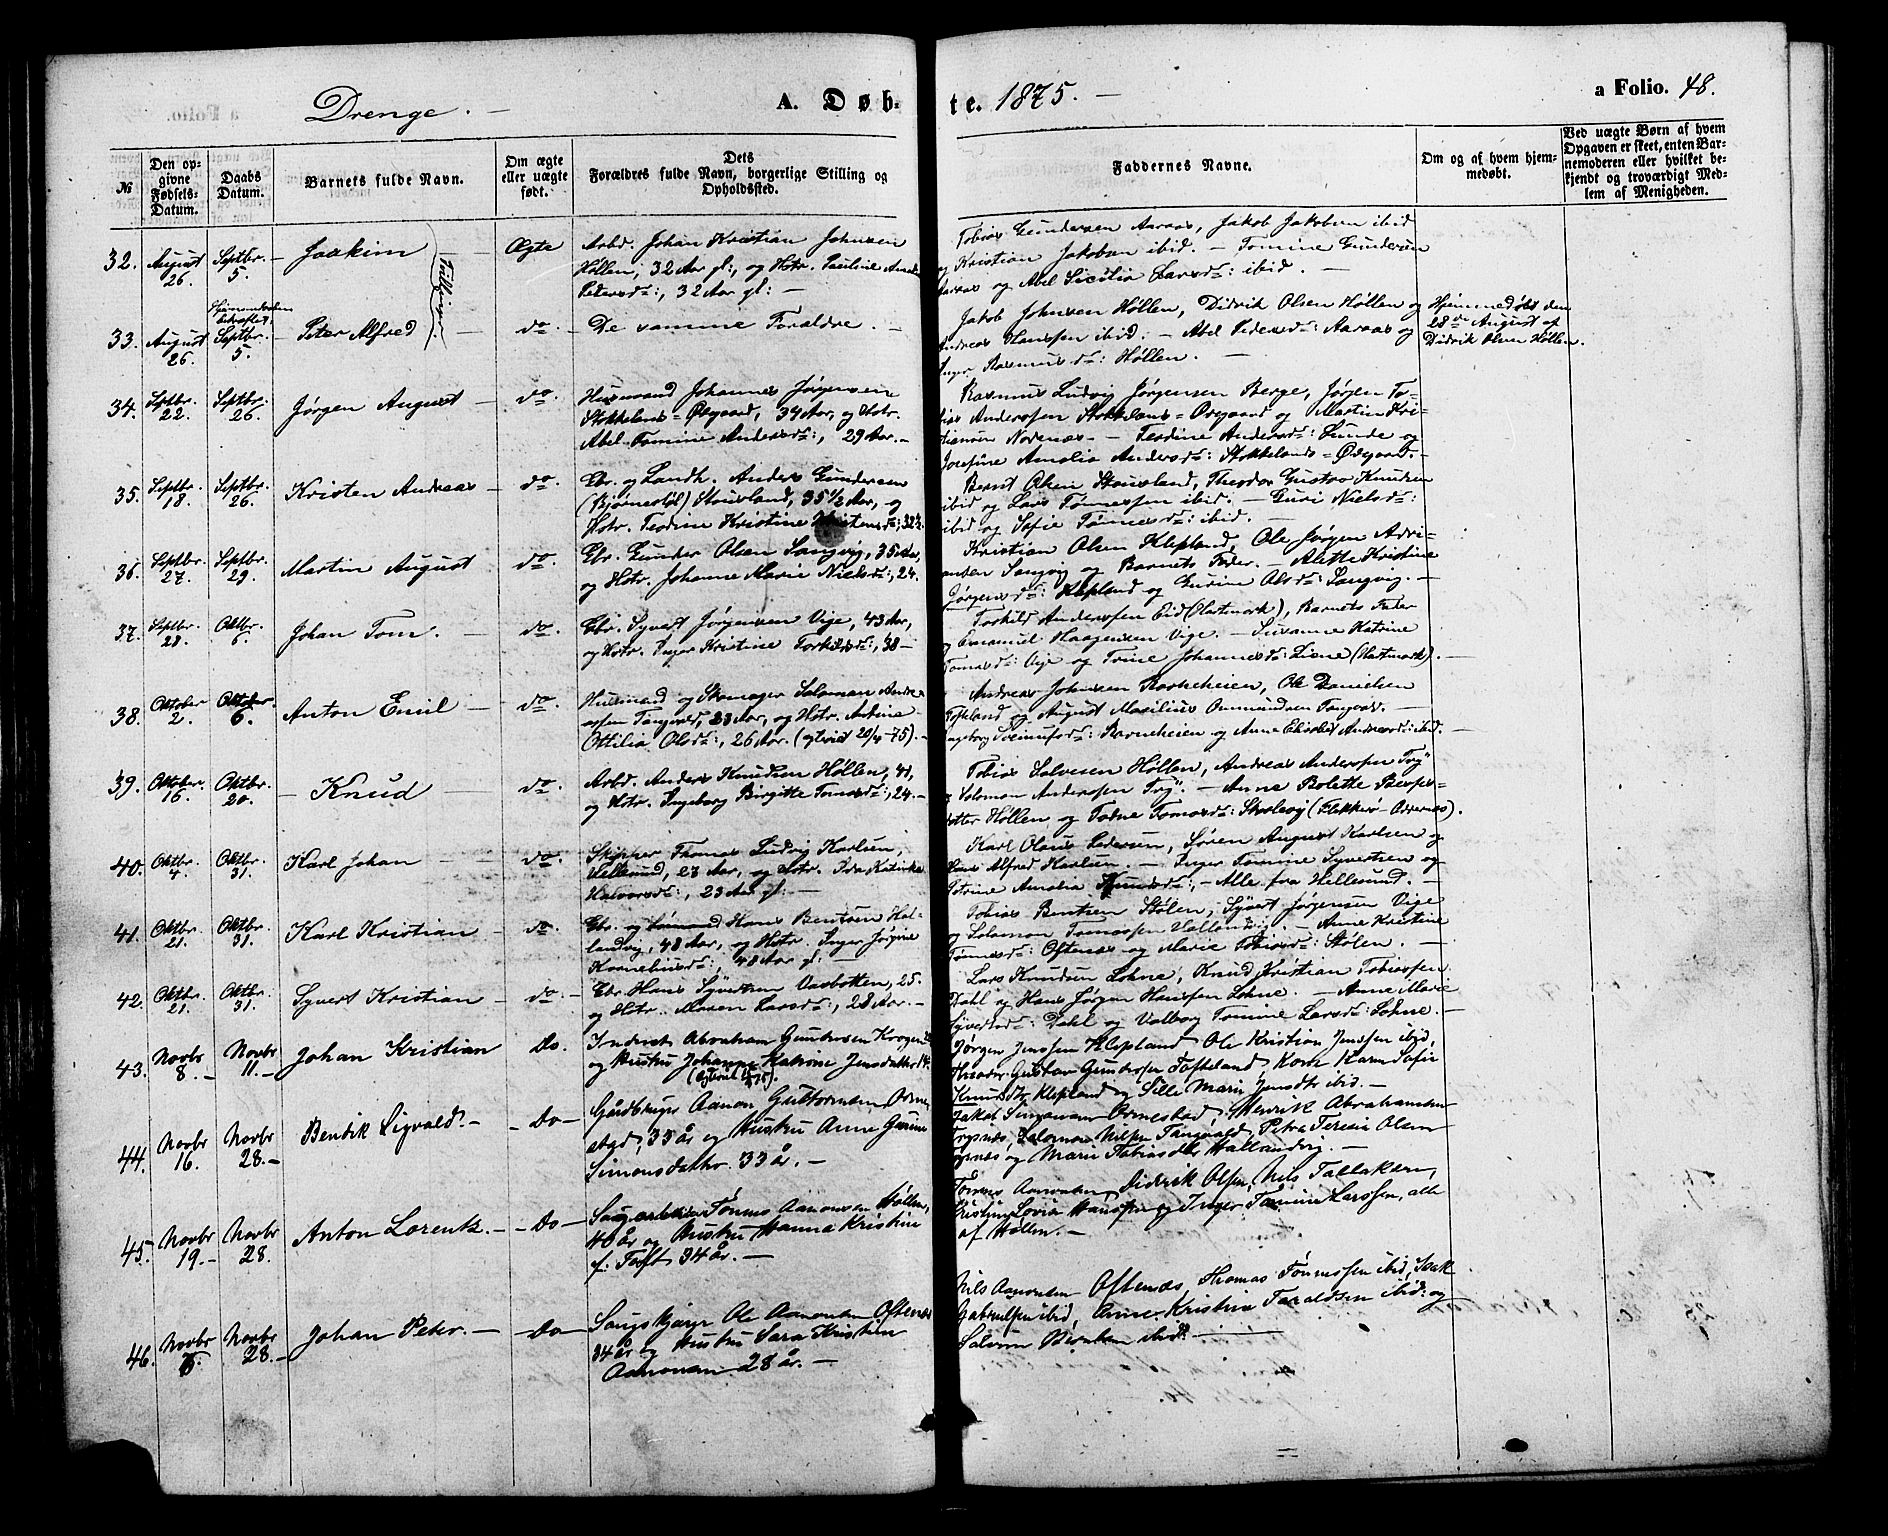 Drenge. —
A. Døb-
te. 1875. —
a Folio. 48.
№
Den op-
givne
Fødsels-
Datum.
Daabs
Datum.
Barnets fulde Navn.
Om ægte
eller uægte
født.
Dets
Forældres fulde Navn, borgerlige Stilling og
Opholdssted.
Faddernes Navne.
Om og af hvem hjem-
medøbt.
Ved uægte Børn af hvem
Opgaven er skeet, enten Bar-
nemoderen eller hvilket be-
kjendt og troværdigt Med-
lem af Menigheden.
32.
August
26.
Septbr.
5.
Joakim
Tvillinger
Ægte
Arbd. Johan Kristian Johnsen
Høllen, 32 Aar gl:, og Hstr. Pauline
Petersd:, 32 Aar gl: —
Tobias Gundersen Aaraas, Jakob Jakobsen ibid
og Kristian Jakobsen ibid. — Tomine Gundersen
Aaraas og Abel Sicilia Larsd: ibid. —
33.
August
26.
Septbr.
5.
— Peter Alfred
do.
De samme Forældre. —
Jakob Johnsen Høllen, Didrik Olsen Høllen og
Andreas Hanssen ibid. — Abel Pedersd: Aaraas og
Inger Rasmusd: Høllen. —
Hjemmedøbt den
28de August af
Didrik Olsen Høllen.
34.
Septbr.
22.
Septbr.
26.
Jørgen August
do.
Husmand Johannes Jørgensen
Stokkelands-Ødegaard, 34 Aar, og Hstr.
Abel Tomine Andersd:, 29 Aar. —
Rasmus Ludvig Jørgensen Berge, Jørgen To-
bias Anderssen Stokkelans-Øregaard og Martin Kri-
stiansen Nodenæs. — Teodine Andersd: Lunde og
Josefine Amalia Andersd: Stokkelands-Øregaard. —
35.
Septbr.
18.
Septbr.
26.
Kristen Andreas —
do.
Gbr. og Landh. Anders Gundersen
(Bjørnestøl) Stausland, 35 1/2 Aar, og
Hstr. Teodine Kristine
Bernt Olsen Stausland, Theodor Gustav Knudsen
ibid og Lars Tønnessen ibid. — Guri Nielsd:
ibid og Sofie Tønnesd: ibid. —
36.
Septbr.
27.
Septbr.
29.
Martin August
do.
Gbr. Gunder Olsen Langvig, 35 Aar,
og Hstr. Johanne Marie Nielsd:, 24.
Kristian Olsen Klepland, Ole Jørgen Adri-
ansen Langvig og Barnets Fader. — Alette Kristine
Jørgensd: Klepland og Gurine Olsd: Langvig. —
37.
Septbr.
28.
Oktbr.
6.
Johan Tom. —
do.
Gbr. Syvert Jørgensen Vige, 43 Aar,
og Hstr. Inger Kristine Torkildsd:, 38 —
Torkild Anderssen Eid (Hartmark), Barnets Fader
og Emanuel Haagensen Vige. — Susanne Katrine
Tomasd: Vige og Trine Johannesd: Liene (Hartmark). —
38.
Oktober
2.
Oktober
6.
Anton Emil —
do.
Husmand og Skomager Saloman Andre-
assen Tangvald, 23 Aar, og Hstr. Andrine
Ottilia Olsd:, 26 Aar. (gtviet 20/4-75). —
Andreas Johnsen Rosneheien, Ole Danielsen
Toftland og August Masilius Ommundsen Tangvald. —
Ingeborg Sveinungsd: Rosneheien og Anne Elisabet Andreasd: ibid. —
39.
Oktober.
16.
Oktbr.
20.
— Knud —
do.
Arbd. Anders Knudsen Høllen, 41,
og Hstr. Ingeborg Birgitte Tomasd:, 24. —
Tobias Salvesen Høllen, Andreas Anderssen Try
og Salomon Anderssen Try. — Anne Bolette
datter Høllen og Tobine Tomasd: Skaalevig (Flekkerø - Oddernæs).
40.
Oktbr.
4.
Oktbr.
31.
Karl Johan —
do.
Skipper Thomas Ludvig Karlsen,
Hellesund, 27 Aar, og Hstr. Ida Katinka
Halvorsd:, 23 Aar gl: —
Karl Olaus Pedersen, Søren August Karlsen og
Hans Alfred Karlsen. — Inger Tomine Syvertsen og
Petrine Amalia Knudsd:. — Alle fra Hellesund. —
41.
Oktbr.
21.
Oktbr.
31.
Karl Kristian —
do.
Gbr. og Sømand Hans Bentsen Hal-
landvig, 48 Aar, og Hstr. Inger Jørgine
Korneliusd:, 48 Aar gl: —
Tobias Bentsen Stølen, Syvert Jørgensen Vige
og Salomon Tomassen Hallandvig. — Anne Kristine
Tønnesd: Oftenæs og Marie Tobiasd: Stølen. —
42.
Oktbr.
21.
Oktbr.
31.
Syvert Kristian —
do. —
Gbr. Hans Syvertsen Vasbotten, 25.
og Hstr. Maren Larsd:, 28 Aar. —
Lars Knudsen Lohne, Knud Kristian Tobiassen
Dahl og Hans Jørgen Hanssen Lohne. — Anne Marie
Syvertsd: Dahl og Valborg Tomine Larsd: Lohne. —
43.
Novbr
8. —
Novbr.
11. —
Johan Kristian
Do.
Inderst Abraham Gundersen Krogen
og Hustru Johanne Katrine Jensdatter
Jørgen Jenssen Klepland Ole Kristian Jenssen ibid,
Theodor Gustav Gundersen Tofteland, Kone Karen Sofie
Knudsdtr Klepland og Sille Marie Jensdtr ibid. —
44.
Novbr
16.
Novbr
28. —
Bentik Sigvald. —
— Do —
Gårdbruger Aanon Guttormsen Ormes-
stad, 35 år og Hustru Anne Gurine
Simonsdatter 33 år. —
Jakob Simonsen Ormestad, Henrik Abrahamsen
Trysnæs, Salomon Nilsen Tangvald, Petra Teresie Olsen
Trysnæs og Marie Tobiasdtr Hallandvig. —
45.
Novbr
19. —
Novbr
28.
Anton Lorentz. —
— Do —
Saugarbeider Tønnes Aanonsen Høllen,
40 år og Hustru Hanna Kristine
f: Toft 34 år. —
Tønnes Aanonsen, Didrik Olsen, Nils Tallaksen,
Kristine Lovise Hanssen og Inger Tomine Larssen, alle
af Høllen. —
46.
Novbr
Novbr
28. —
Johan Peter. —
— Do —
Ole Aanonsen Oftenæs
34 år og Hustru Sara Kristine
Aanonsen 28 år. —
Nils Aanonsen Oftenæs, Thomas Tønnessen ibid, Isak
Gabrielsen ibid, Anne Kristine Taraldsen ibid: og